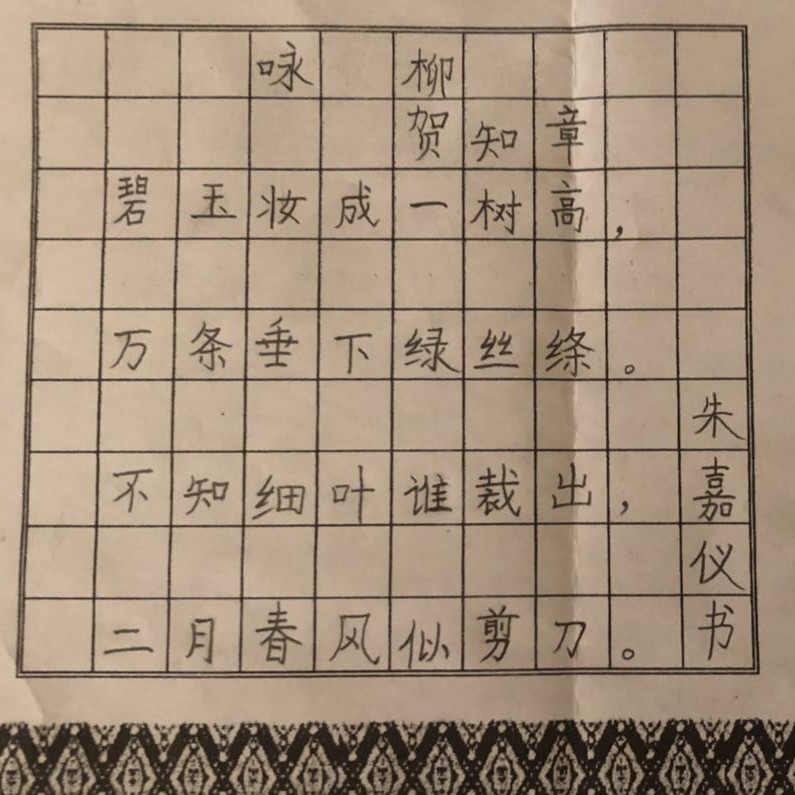 咏柳
贺知章
碧玉妆成一树高，
万条垂下绿丝绦。
不知细叶谁裁出，
二月春风似剪刀。
朱嘉仪书